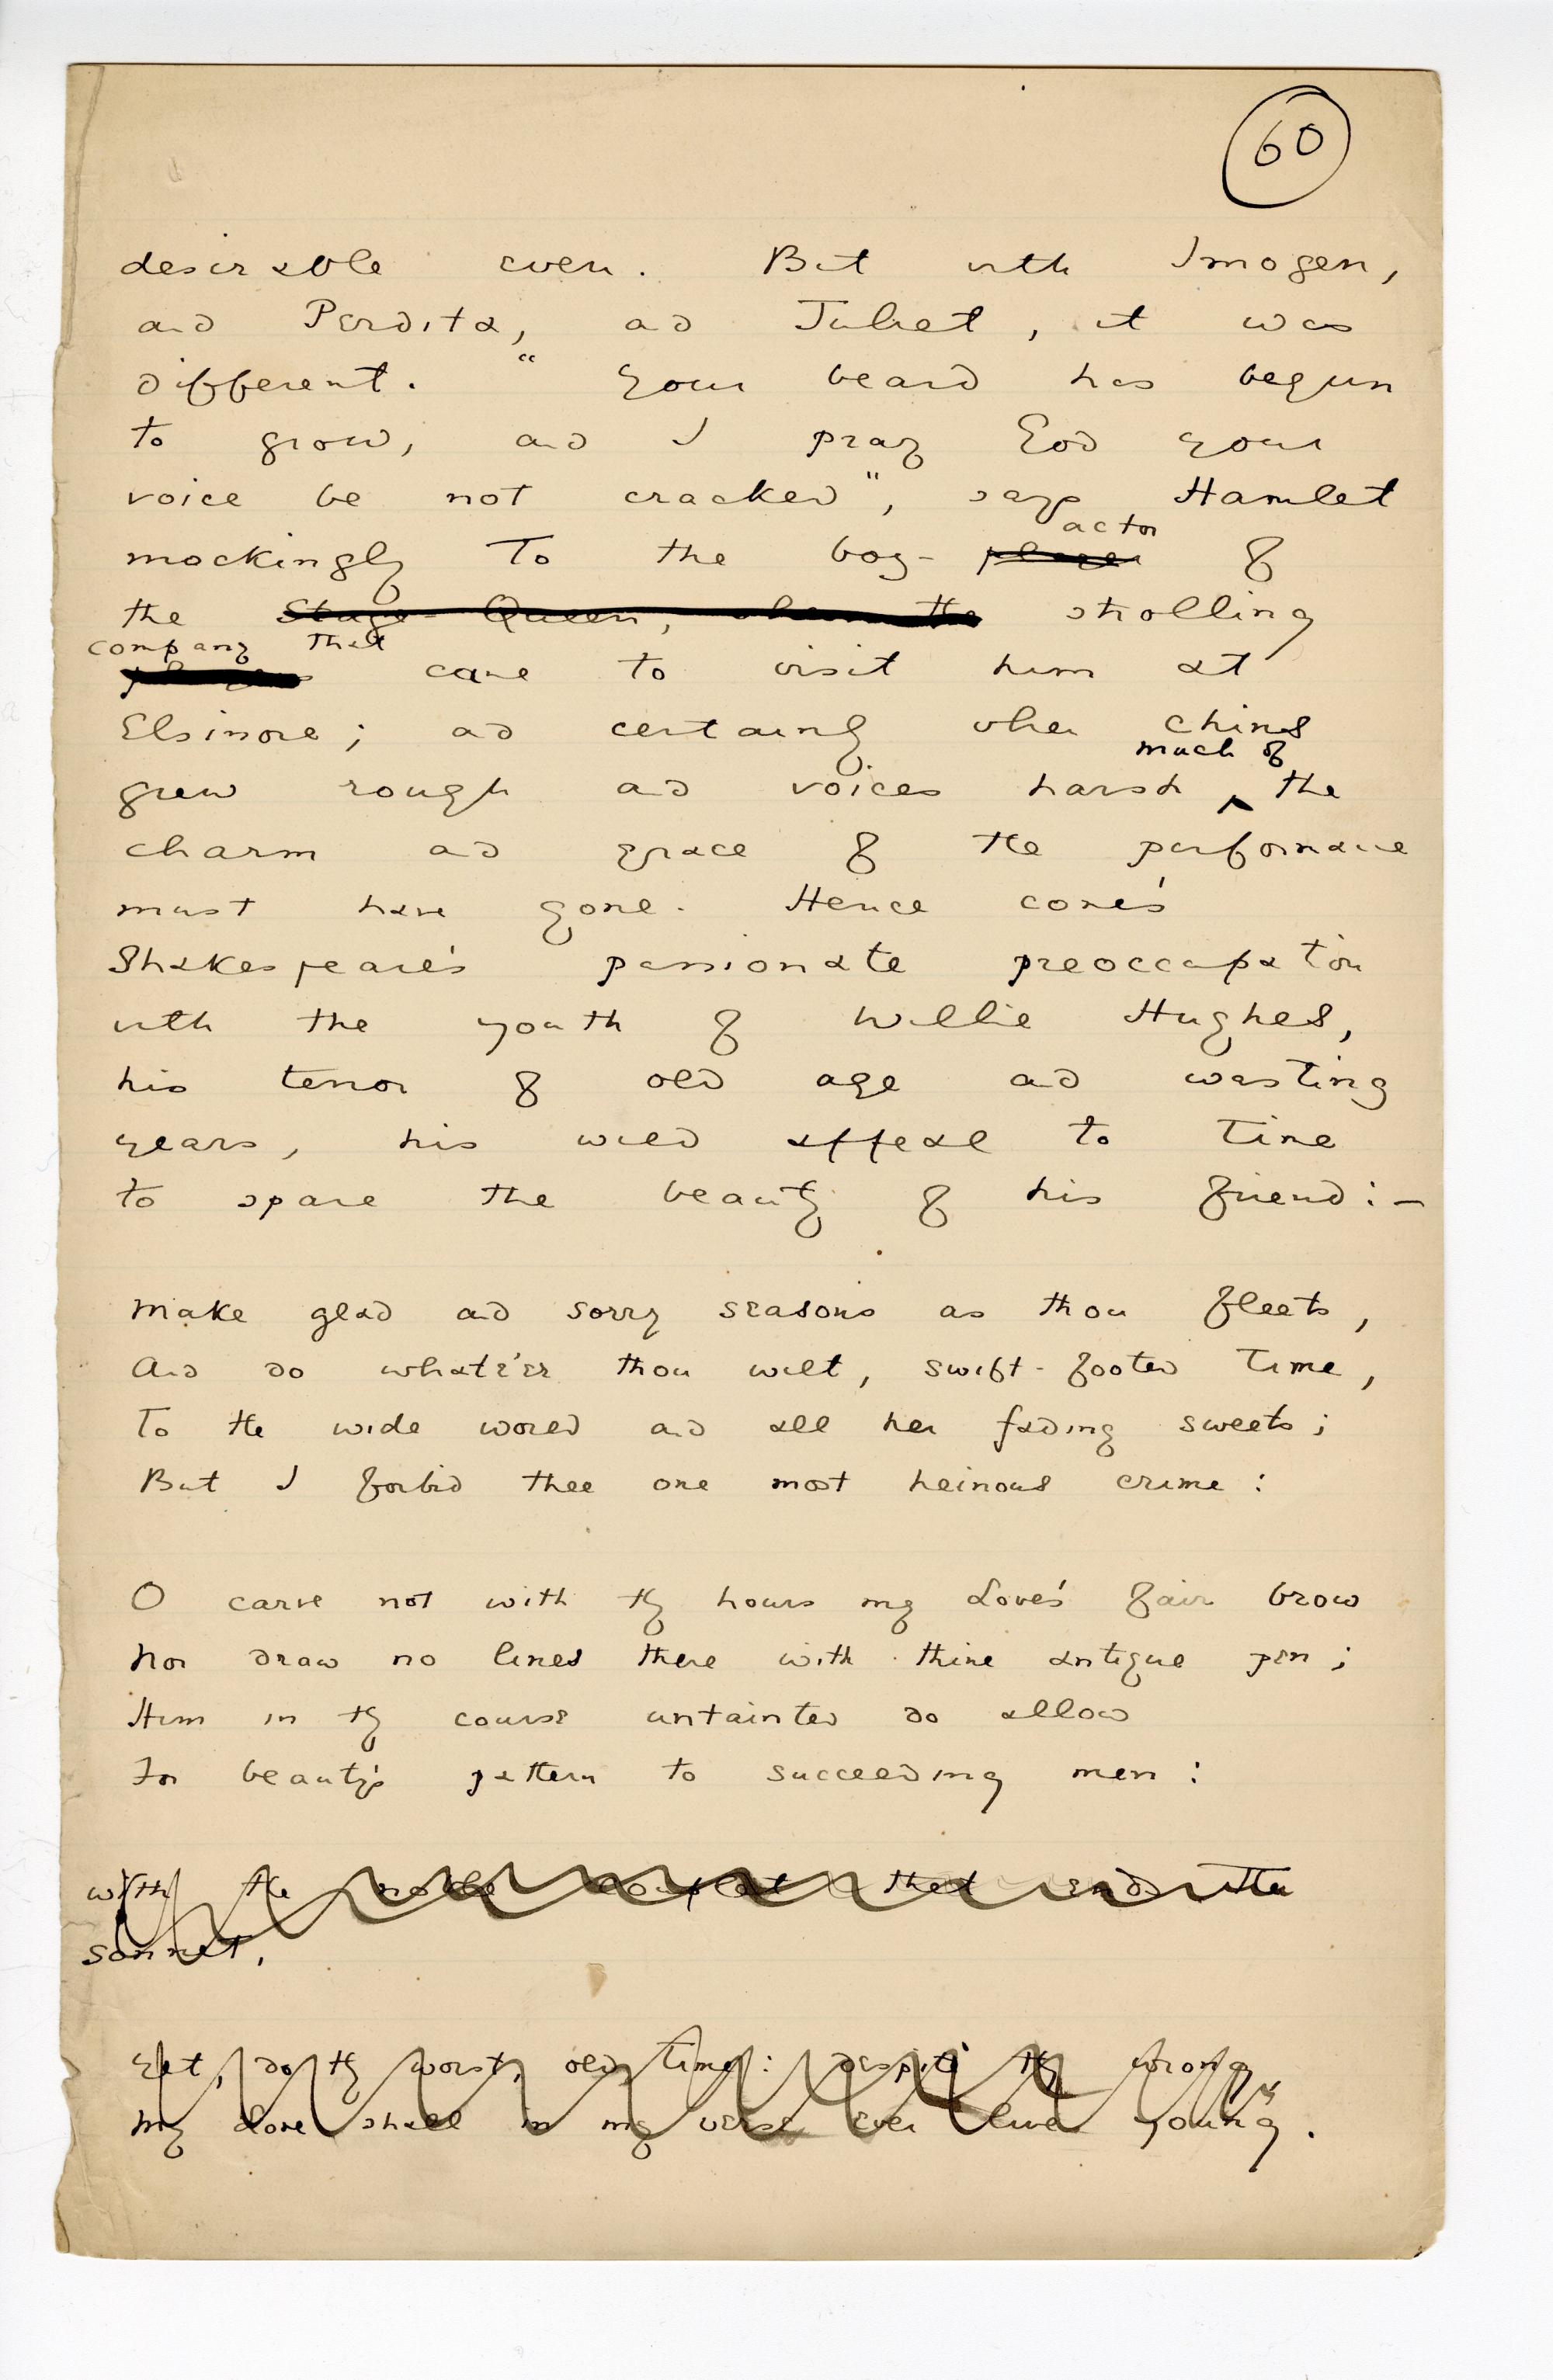 60
desirable even. But with Imogen,
and Perdita, and Juliet, it was
different. "Your beard has begun
to grow, and I pray God your
voice be not cracked", says Hamlet
actor
mockingly to the boy-player of
the Stage-Queen, when the strolling
company that
players came to visit him at
Elsinore; and certainly when chins
much of
grew rough and voices harsh ^ the
charm and grace of the performance
must have gone. Hence comes
Shakespeare's passionate preoccupation
with the youth of Willie Hughes,
his terror of old age and wasting
years, his wild appeal to time
to spare the beauty of his friend:—
Make glad and sorry seasons as thou fleets,
And do whate'er thou wilt, swift-footed Time,
To the wide world and all her fading sweets;
But I forbid thee one most heinous crime:
O carve not with thy hours my Love's fair brow
Nor draw no lines there with thine antique pen;
Him in thy course untainted do allow
For beauty's pattern to succeeding men:
with the noble couplet that ends the
sonnet.
Yet, do thy worst, old Time: despite thy wrong,
My Love shall in my verse ever live young.